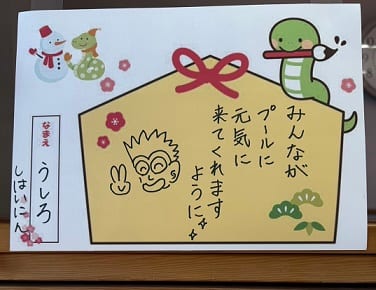 みんなが
プールに
元気に
来てくれます
ように
なまえ
うしろ
しはいにん